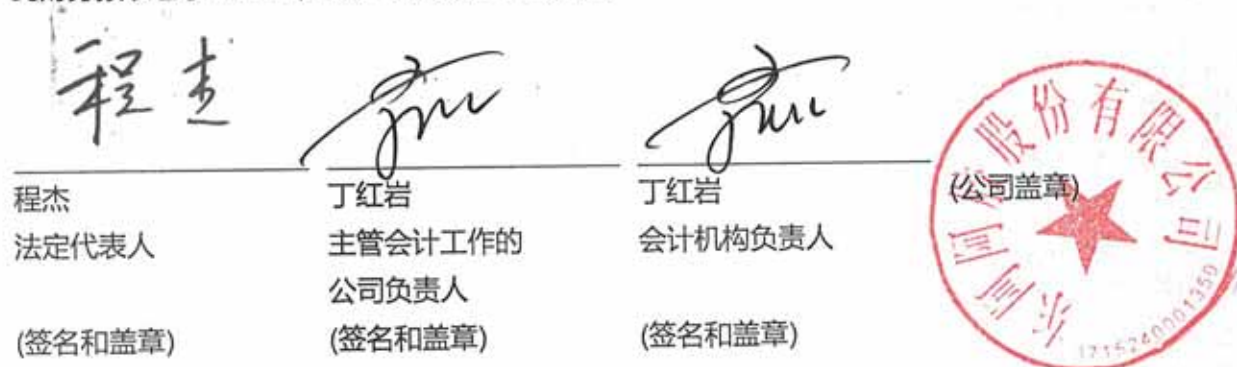 程杰
程杰
法定代表人
(签名和盖章)
丁红岩
主管会计工作的
公司负责人
(签名和盖章)
丁红岩
会计机构负责人
(签名和盖章)
(公司盖章)
东阿阿胶股份有限公司